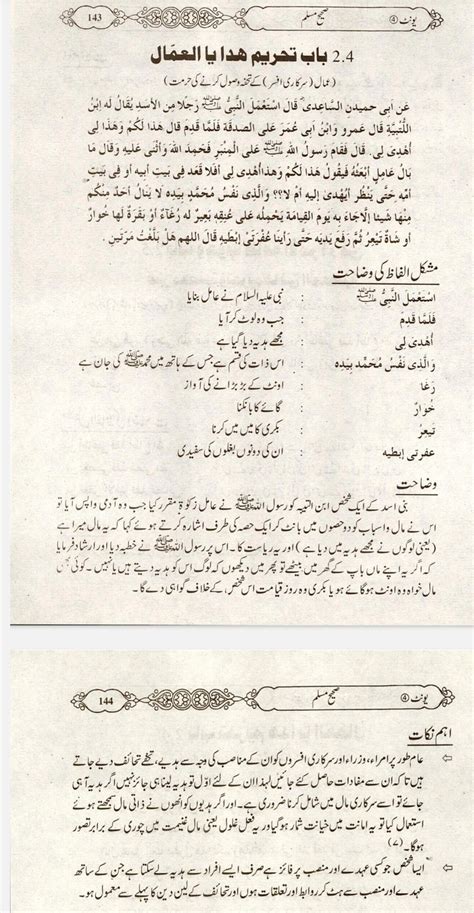 143 صحیح مسلم یونٹ ④
2.4 باب تحریم ھدایا العمّال
(عمال (سرکاری افسر) کے تحفہ وصول کرنے کی حرمت)
عَن أبی حمیدن الساعدی قَالَ اسْتَعْمَلَ النَّبِیُّ ﷺ رَجُلا مِن الأسد یُقَالُ لَهٗ ابْنُ
اللُّتْبِیَّةِ قال عمرو وَابْنُ أبی عُمَرَ عَلی الصدقة فَلَمَّا قَدِمَ قال هٰذا لَكُم وَهٰذا لِی
أُهْدِیَ لِی. قال فقَامَ رسولُ الله ﷺ عَلَی الْمِنْبَرِ فَحَمِدَ اللهَ وَأثْنٰی عَلَیه وَقَالَ مَا
بَالُ عَامِلٍ أبْعَثُهٗ فیقُولُ هذَا لَكُمْ وَهذا أُهْدِیَ لِی أفَلا قَعَدَ فِی بَیتِ أبیه أو فِی بَیْتِ
أمّه حَتّٰی یَنْظُرَ أیُهْدٰی إلیه أم لا؟؟ وَالَّذِی نَفْسُ مُحَمَّدٍ بِیَدِهٖ لا یَنَالُ أحَدٌ مِنْكُم
مِنْهَا شیئا إلَّا جَاءَ بِهٖ یومَ القِیَامَة یَحْمِلُهٗ عَلَی عُنُقِهٖ بَعِیرٌ لَهٗ رُغَاءٌ أوْ بَقَرَةٌ لَهَا خُوَارٌ
أو شَاةٌ تَیْعَرُ ثُمَّ رَفَعَ یَدَیْهِ حَتّٰی رأینَا عُفْرَتَیْ إِبْطَیهِ قَالَ اللهم هَلْ بَلَّغْتُ مَرَّتَینِ.
مشکل الفاظ کی وضاحت
اسْتَعْمَلَ النَّبِیُّ ﷺ : نبی علیہ السلام نے عامل بنایا
فَلَمَّا قَدِمَ : جب وہ لوٹ کر آیا
أُهْدِیَ لِی : مجھے ہدیہ دیا گیا ہے
وَالَّذِی نَفْسُ مُحَمَّدٍ بِیَدِهٖ : اس ذات کی قسم ہے جس کے ہاتھ میں محمد ﷺ کی جان ہے
رَغَا : اونٹ کے بڑبڑانے کی آواز
خُوَارٌ : گائے کا بانکنا
تیعِرُ : بکری کا میں میں کرنا
عفرتی إبطیه : ان کی دونوں بغلوں کی سفیدی
وضاحت
بنی اسد کے ایک شخص ابن التبیہ کو رسول اللہ ﷺ نے عامل زکوٰۃ مقرر کیا جب وہ آدمی واپس آیا تو
اس نے مال و اسباب کو دو حصوں میں بانٹ کر ایک حصہ کی طرف اشارہ کرتے ہوئے کہا کہ یہ مال میرا ہے
(یعنی لوگوں نے مجھے ہدیہ میں دیا ہے) اور یہ ریاست کا۔ اس پر رسول اللہ ﷺ نے خطبہ دیا اور ارشاد فرمایا
کہ اگر یہ اپنے ماں باپ کے گھر میں بیٹھے تو پھر میں دیکھوں کہ لوگ اس کو ہدیہ دیتے ہیں یا نہیں۔ کوئی بھی
مال خواہ وہ اونٹ ہو گائے ہو یا بکری وہ روز قیامت اس شخص کے خلاف گواہی دے گا۔
144 صحیح مسلم یونٹ ④
اہم نکات
⇦ عام طور پر امراء، وزراء اور سرکاری افسروں کو ان کے مناصب کی وجہ سے ہدیے، تحفے تحائف دیے جاتے
ہیں تا کہ ان سے مفادات حاصل کئے جائیں لہٰذا ان کے لئے اوّل تو ہدیہ لینا ہی جائز نہیں اگر ہدیہ آ ہی
جائے تو اسے سرکاری مال میں شامل کرنا ضروری ہے۔ اور اگر ہدیوں کو انھوں نے ذاتی مال سمجھتے ہوئے
استعمال کیا تو یہ امانت میں خیانت شمار ہوگا اور یہ فعل غلول یعنی مال غنیمت میں چوری کے برابر تصور
ہوگا۔ (۷)
⇦ ایسا شخص جو کسی عہدے اور منصب پر فائز ہے صرف ایسے افراد سے ہدیہ لے سکتا ہے جن کے ساتھ
عہدے اور منصب سے ہٹ کر روابط اور تعلقات ہوں اور تحائف کے لین دین کا پہلے سے معمول ہو۔